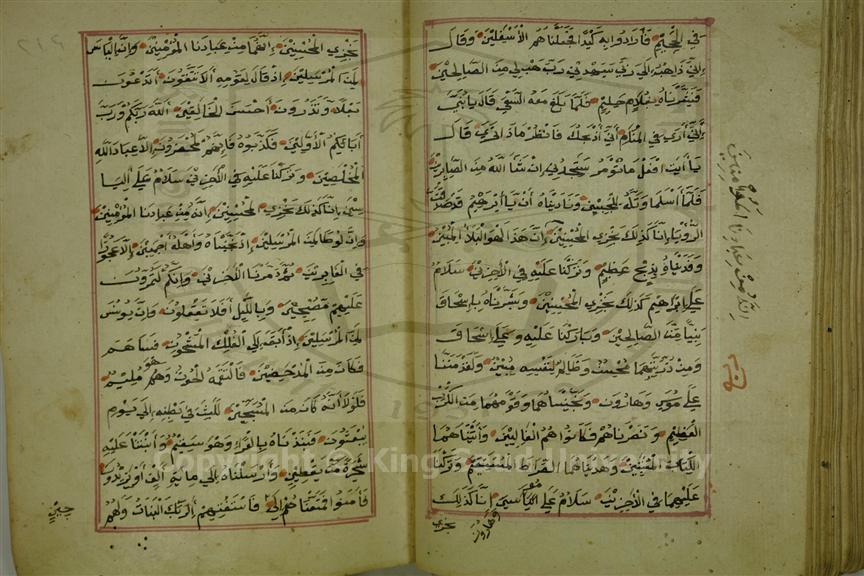 في الجحيم فأرادوا به كيدا فجعلناهم الأسفلين وقال
إني ذاهب إلى ربي سيهدين رب هب لي من الصالحين
فبشرناه بغلام حليم فلما بلغ معه السعي قال يا بني
إني أرى في المنام أني أذبحك فانظر ماذا ترى قال
يا أبت افعل ما تؤمر ستجدني إن شاء الله من الصابرين
فلما أسلما وتله للجبين وناديناه أن يا إبراهيم قد صدقت
الرؤيا إنا كذلك نجزي المحسنين إن هذا لهو البلاء المبين
وفديناه بذبح عظيم وتركنا عليه في الآخرين سلام
على إبراهيم كذلك نجزي المحسنين وبشرناه بإسحاق
نبيا من الصالحين وباركنا عليه وعلى إسحاق
ومن ذريتهما محسن وظالم لنفسه مبين ولقد مننا
على موسى وهارون ونجيناهما وقومهما من الكرب
العظيم ونصرناهم فكانوا هم الغالبين وآتيناهما
الكتاب المستبين وهديناهما الصراط المستقيم وتركنا
عليهما في الآخرين سلام على موسى وهارون إنا كذلك
نجزي
نجزي المحسنين إنهما من عبادنا المؤمنين وإن إلياس
لمن المرسلين إذ قال لقومه ألا تتقون أتدعون
بعلا وتذرون أحسن الخالقين الله ربكم ورب
آبائكم الأولين فكذبوه فإنهم لمحضرون إلا عباد الله
المخلصين وتركنا عليه في الآخرين سلام على اليا
سين إنا كذلك نجزي المحسنين إنه من عبادنا المؤمنين
وإن لوطا لمن المرسلين إذ نجيناه وأهله أجمعين إلا عجوزا
في الغابرين ثم دمرنا الآخرين وإنكم لتمرون
عليهم مصبحين وبالليل أفلا تعقلون وإن يونس
لمن المرسلين إذ أبق إلى الفلك المشحون فساهم
فكان من المدحضين فالتقمه الحوت وهو مليم
فلولا أنه كان من المسبحين للبث في بطنه إلى يوم
يبعثون فنبذناه بالعراء وهو سقيم وأنبتنا عليه
شجرة من يقطين وأرسلناه إلى مائة ألف أو يزيدون
فآمنوا فمتعناهم إلى فاستفتهم ألربك البنات ولهم
حين
٢١٩
Copyright © King Saud University